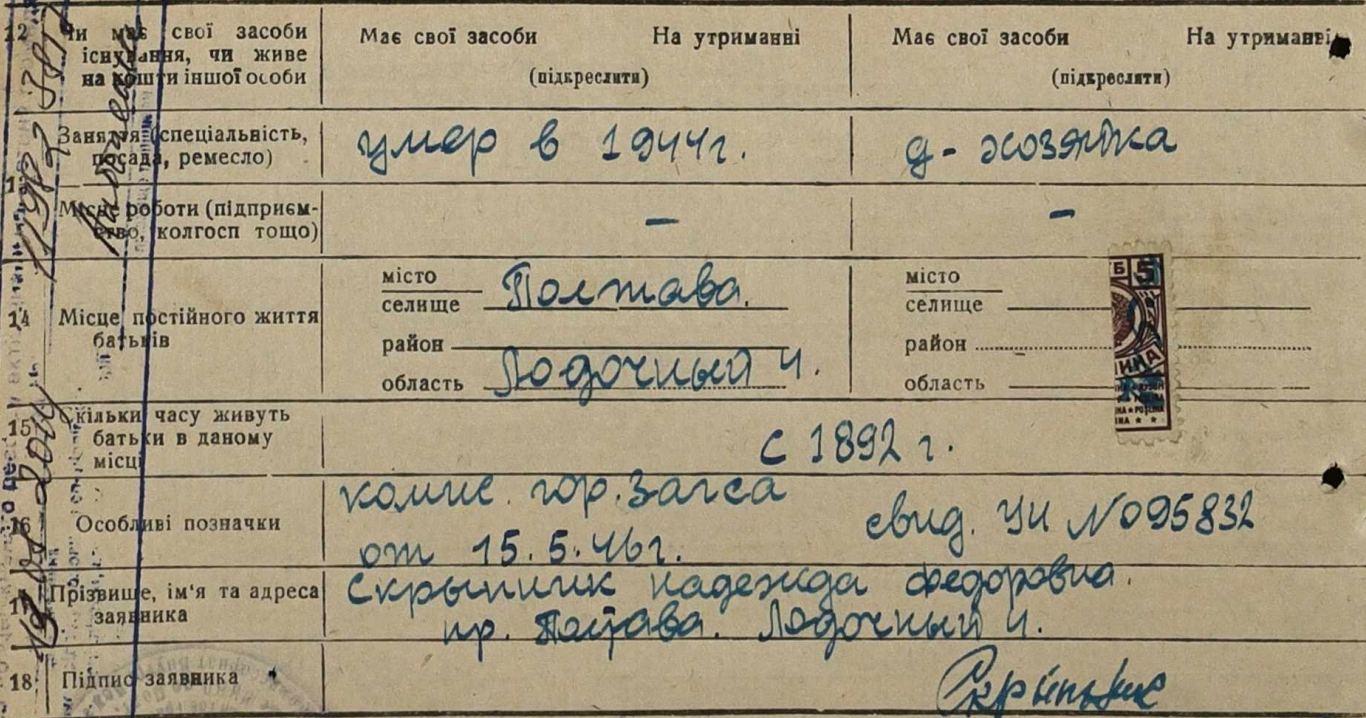 12 Чи має свої засоби існування, чи живе на кошти іншої особи
Має свої засоби На утриманні
(підкреслити)
Має свої засоби На утриманні
(підкреслити)
Заняття (спеціальність, посада, ремесло)
умер в 1944г.
д-хозяйка
Місце роботи (підприємство, колгосп тощо)
—
—
14 Місце постійного життя батьків
місто
селище Полтава.
район
область Лодочный 4.
місто
селище
район
область
Б 5
15 Скільки часу живуть батьки в даному місці
с 1892 г.
16 Особливі позначки
комис. гор. Загса
от 15.5.46г.
свид. УИ №095832
17 Прізвище, ім'я та адреса заявника
Скрынник надежда федоровна.
пр. Полтава. Лодочный 4.
18 Підпис заявника
Скрынник